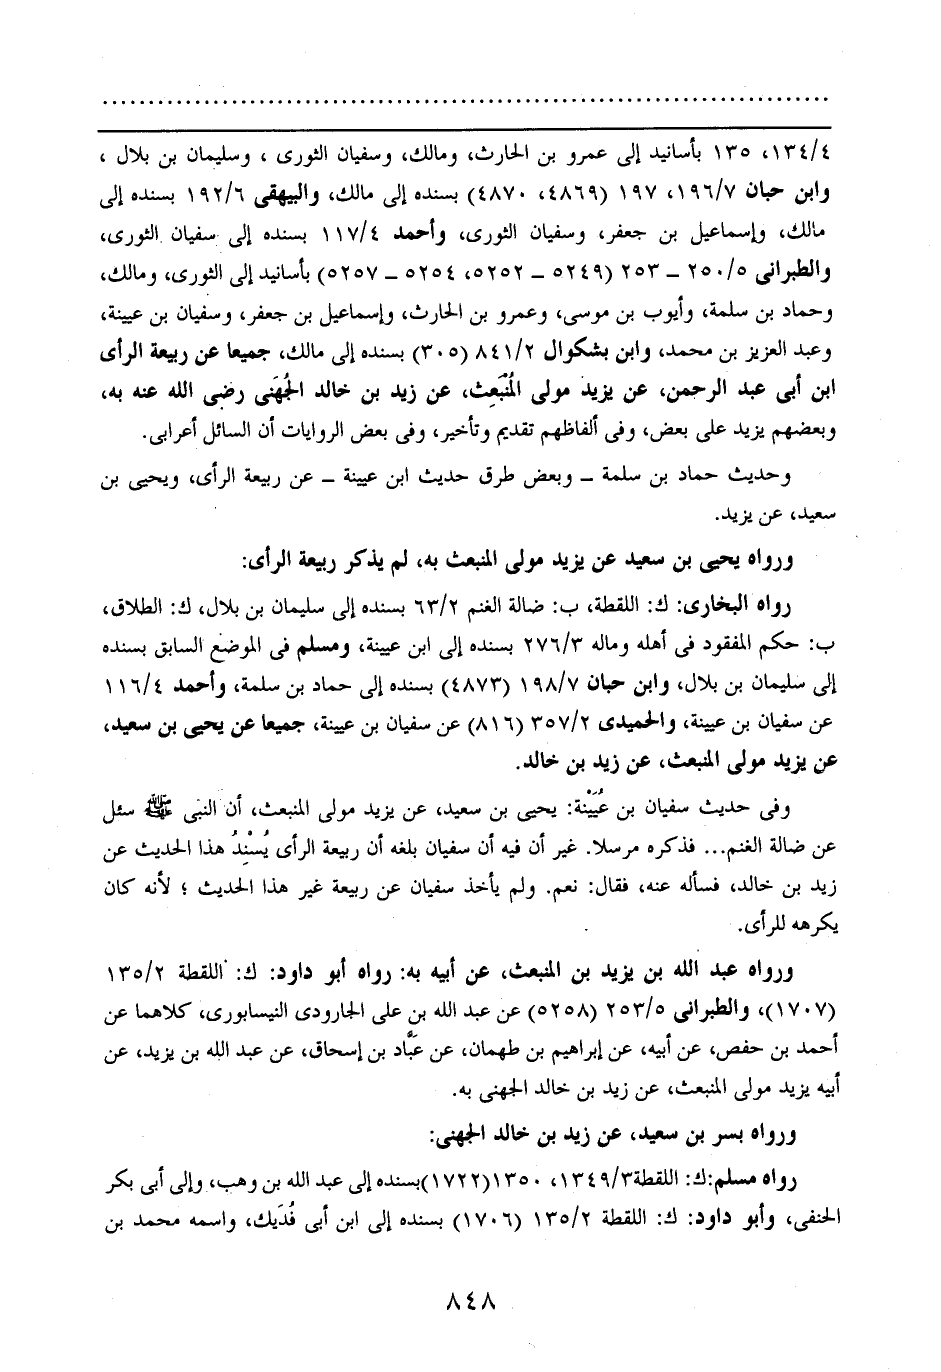 ٤/١٣٤، ١٣٥ بأسانيد إلى عمرو بن الحارث، ومالك، وسفيان الثورى ، وسليمان بن بلال ،
وابن حبان ٧/١٩٦، ١٩٧ (٤٨٦٩، ٤٨٧٠) بسنده إلى مالك، والبيهقى ٦/١٩٢ بسنده إلى
مالك، وإسماعيل بن جعفر، وسفيان الثورى، وأحمد ٤/١١٧ بسنده إلى سفيان الثورى،
والطبرانى ٥/٢٥٠ – ٢٥٣ (٥٢٤٩ – ٥٢٥٢، ٥٢٥٤ – ٥٢٥٧) بأسانيد إلى الثورى، ومالك،
وحماد بن سلمة، وأيوب بن موسى، وعمرو بن الحارث، وإسماعيل بن جعفر، وسفيان بن عيينة،
وعبد العزيز بن محمد، وابن بشكوال ٢/٨٤١ (٣٠٥) بسنده إلى مالك، جميعا عن ربيعة الرأى
ابن أبى عبد الرحمن، عن يزيد مولى المُنْبَعِث، عن زيد بن خالد الجُهَنى رضى الله عنه به،
وبعضهم يزيد على بعض، وفى ألفاظهم تقديم وتأخير، وفى بعض الروايات أن السائل أعرابى.
وحديث حماد بن سلمة – وبعض طرق حديث ابن عيينة – عن ربيعة الرأى، ويحيى بن
سعيد، عن يزيد.
ورواه يحيى بن سعيد عن يزيد مولى المنبعث به، لم يذكر ربيعة الرأى:
رواه البخارى: ك: اللقطة، ب: ضالة الغنم ٢/٦٣ بسنده إلى سليمان بن بلال، ك: الطلاق،
ب: حكم المفقود فى أهله وماله ٣/٢٧٦ بسنده إلى ابن عيينة، ومسلم فى الموضع السابق بسنده
إلى سليمان بن بلال، وابن حبان ٧/١٩٨ (٤٨٧٣) بسنده إلى حماد بن سلمة، وأحمد ٤/١١٦
عن سفيان بن عيينة، والحميدى ٢/٣٥٧ (٨١٦) عن سفيان بن عيينة، جميعا عن يحيى بن سعيد،
عن يزيد مولى المنبعث، عن زيد بن خالد.
وفى حديث سفيان بن عُيَيْنة: يحيى بن سعيد، عن يزيد مولى المنبعث، أن النبى ﷺ سئل
عن ضالة الغنم... فذكره مرسلا. غير أن فيه أن سفيان بلغه أن ربيعة الرأى يُسْنِدُ هذا الحديث عن
زيد بن خالد، فسأله عنه، فقال: نعم. ولم يأخذ سفيان عن ربيعة غير هذا الحديث ؛ لأنه كان
يكرهه للرأى.
ورواه عبد الله بن يزيد بن المنبعث، عن أبيه به: رواه أبو داود: ك: اللقطة ٢/١٣٥
(١٧٠٧)، والطبرانى ٥/٢٥٣ (٥٢٥٨) عن عبد الله بن على الجارودى النيسابورى، كلاهما عن
أحمد بن حفص، عن أبيه، عن إبراهيم بن طهمان، عن عبَّاد بن إسحاق، عن عبد الله بن يزيد، عن
أبيه يزيد مولى المنبعث، عن زيد بن خالد الجهنى به.
ورواه بسر بن سعيد، عن زيد بن خالد الجهنى:
رواه مسلم:ك: اللقطة٣/١٣٤٩، ١٣٥٠(١٧٢٢)بسنده إلى عبد الله بن وهب، وإلى أبى بكر
الحنفى، وأبو داود: ك: اللقطة ٢/١٣٥ (١٧٠٦) بسنده إلى ابن أبى فُدَيك، واسمه محمد بن
٨٤٨